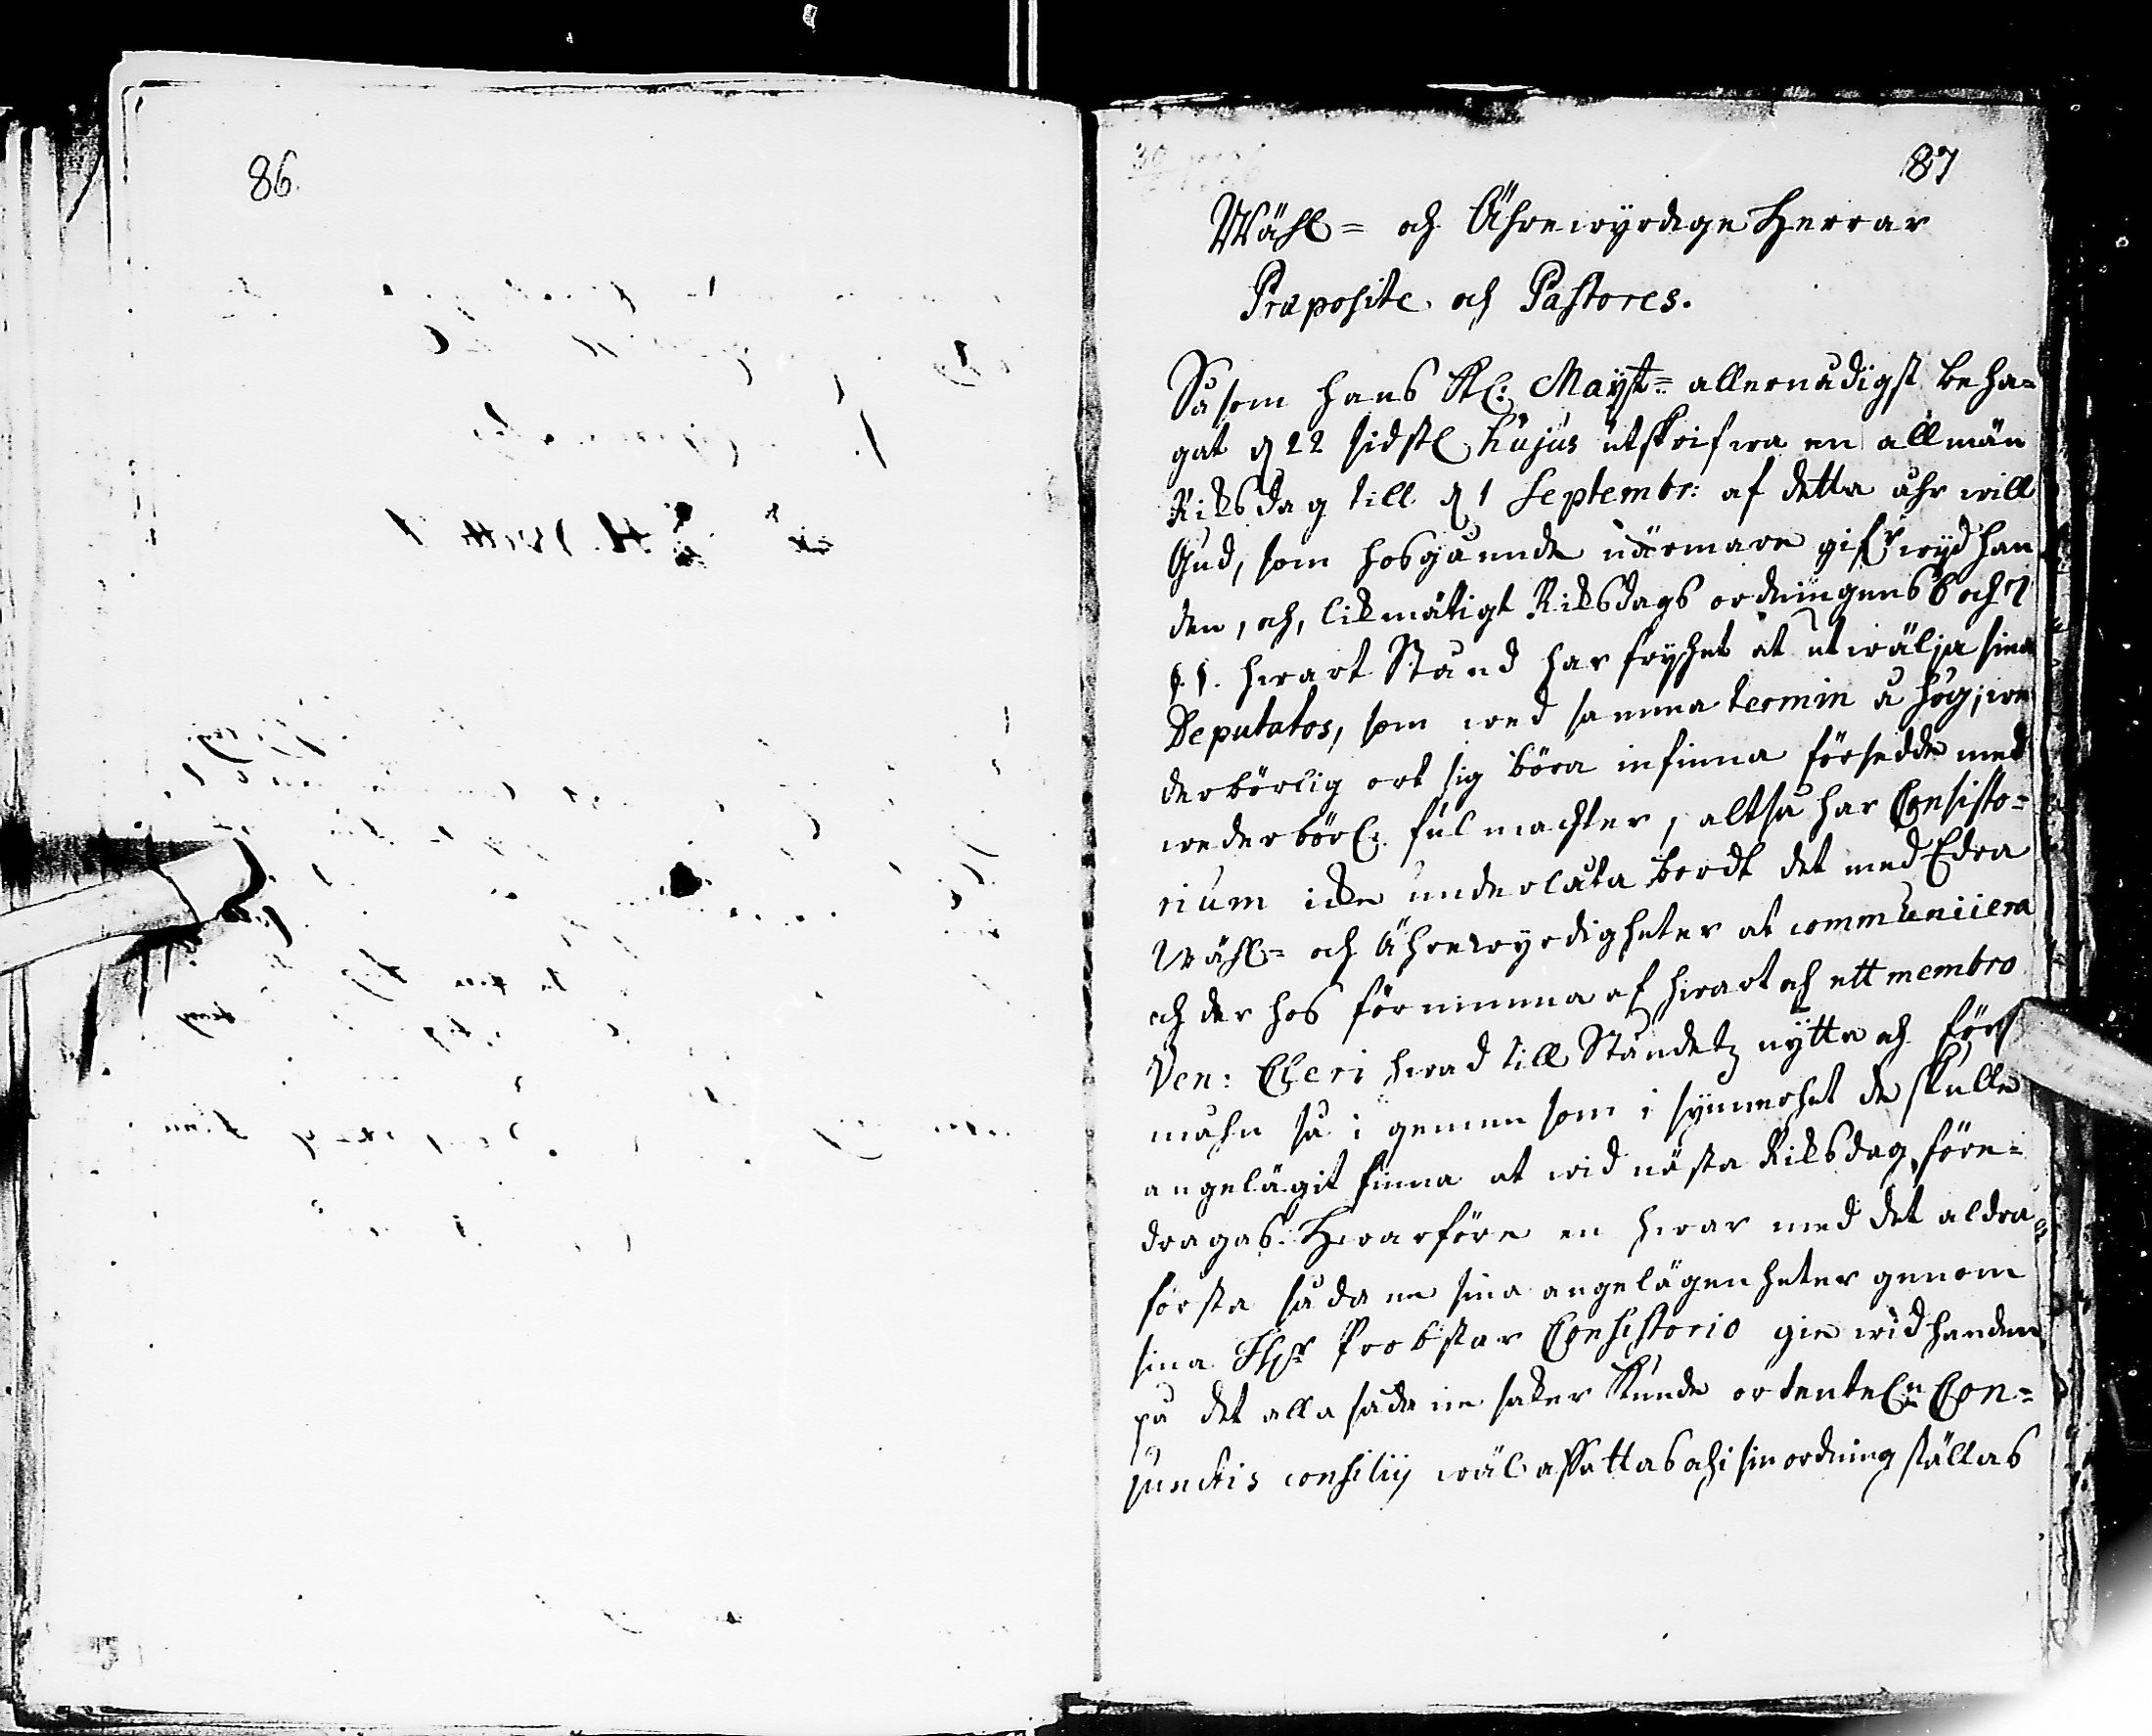 86.
87
Wähl= och Ährewyrdige Herrar
Præposite och Pastores.
Såsom hans Kl: Mayst= allernådigst beha=
gat d 22 sidstl hujus utskrifwa en allmän
Riksdag till d 1 Septembr: af detta åhr will
Gud, som hosgående närmare gifr wyd han
den, och, likmätigt Riksdags ordningens 6 och 7
§.§. hwart Stånd har fryhet at utwälja sina
Deputatos, som wed samma termin å hög, we
derbörlig ort sig böra infinna försedde med
wederbörl. fulmachter, altså har Consisto=
rium icke underlåta bordt det med Edra
Wähl= och Ährewyrdigheter at communicera
och der hos förnimma af hwart och ett membro
Ven: Cleri hwad till Ståndetz nytta och
mahn så i gemen som i synnerhet de skulle
angelägit finna at wid nästa Riksdag före=
dragas. Hwarföre en hwar med det aldra=
första sådane sina angelägenheter genom
sina Probstar Consistorio gie wid handen
på det alla sådane saker kunde ortenteln Con=
junctis consiliis wäl affattas och i sin ordning ställas